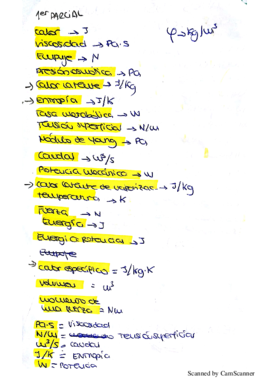 1er PARCIAL
calor → J
φ → kg/m³
viscosidad → Pa·s
Empuje → N
Presión osmótica → Pa
→ calor latente → J/kg
→ entropía → J/K
Tasa metabólica → W
Tensión superficial → N/m
Módulo de Young → Pa
Caudal → m³/s
Potencia mecánica → W
→ calor latente de vaporizac. → J/kg
temperatura → K
Fuerza → N
Energía → J
Energía Potencial → J
Empuje
→ calor específico = J/kg·K
volumen = m³
momento de
una fuerza = Nm
Pa·s = Viscosidad
N/m = Tensión superficial
m³/s = caudal
J/K = ENTROPIA
W = POTENCIA
Scanned by CamScanner